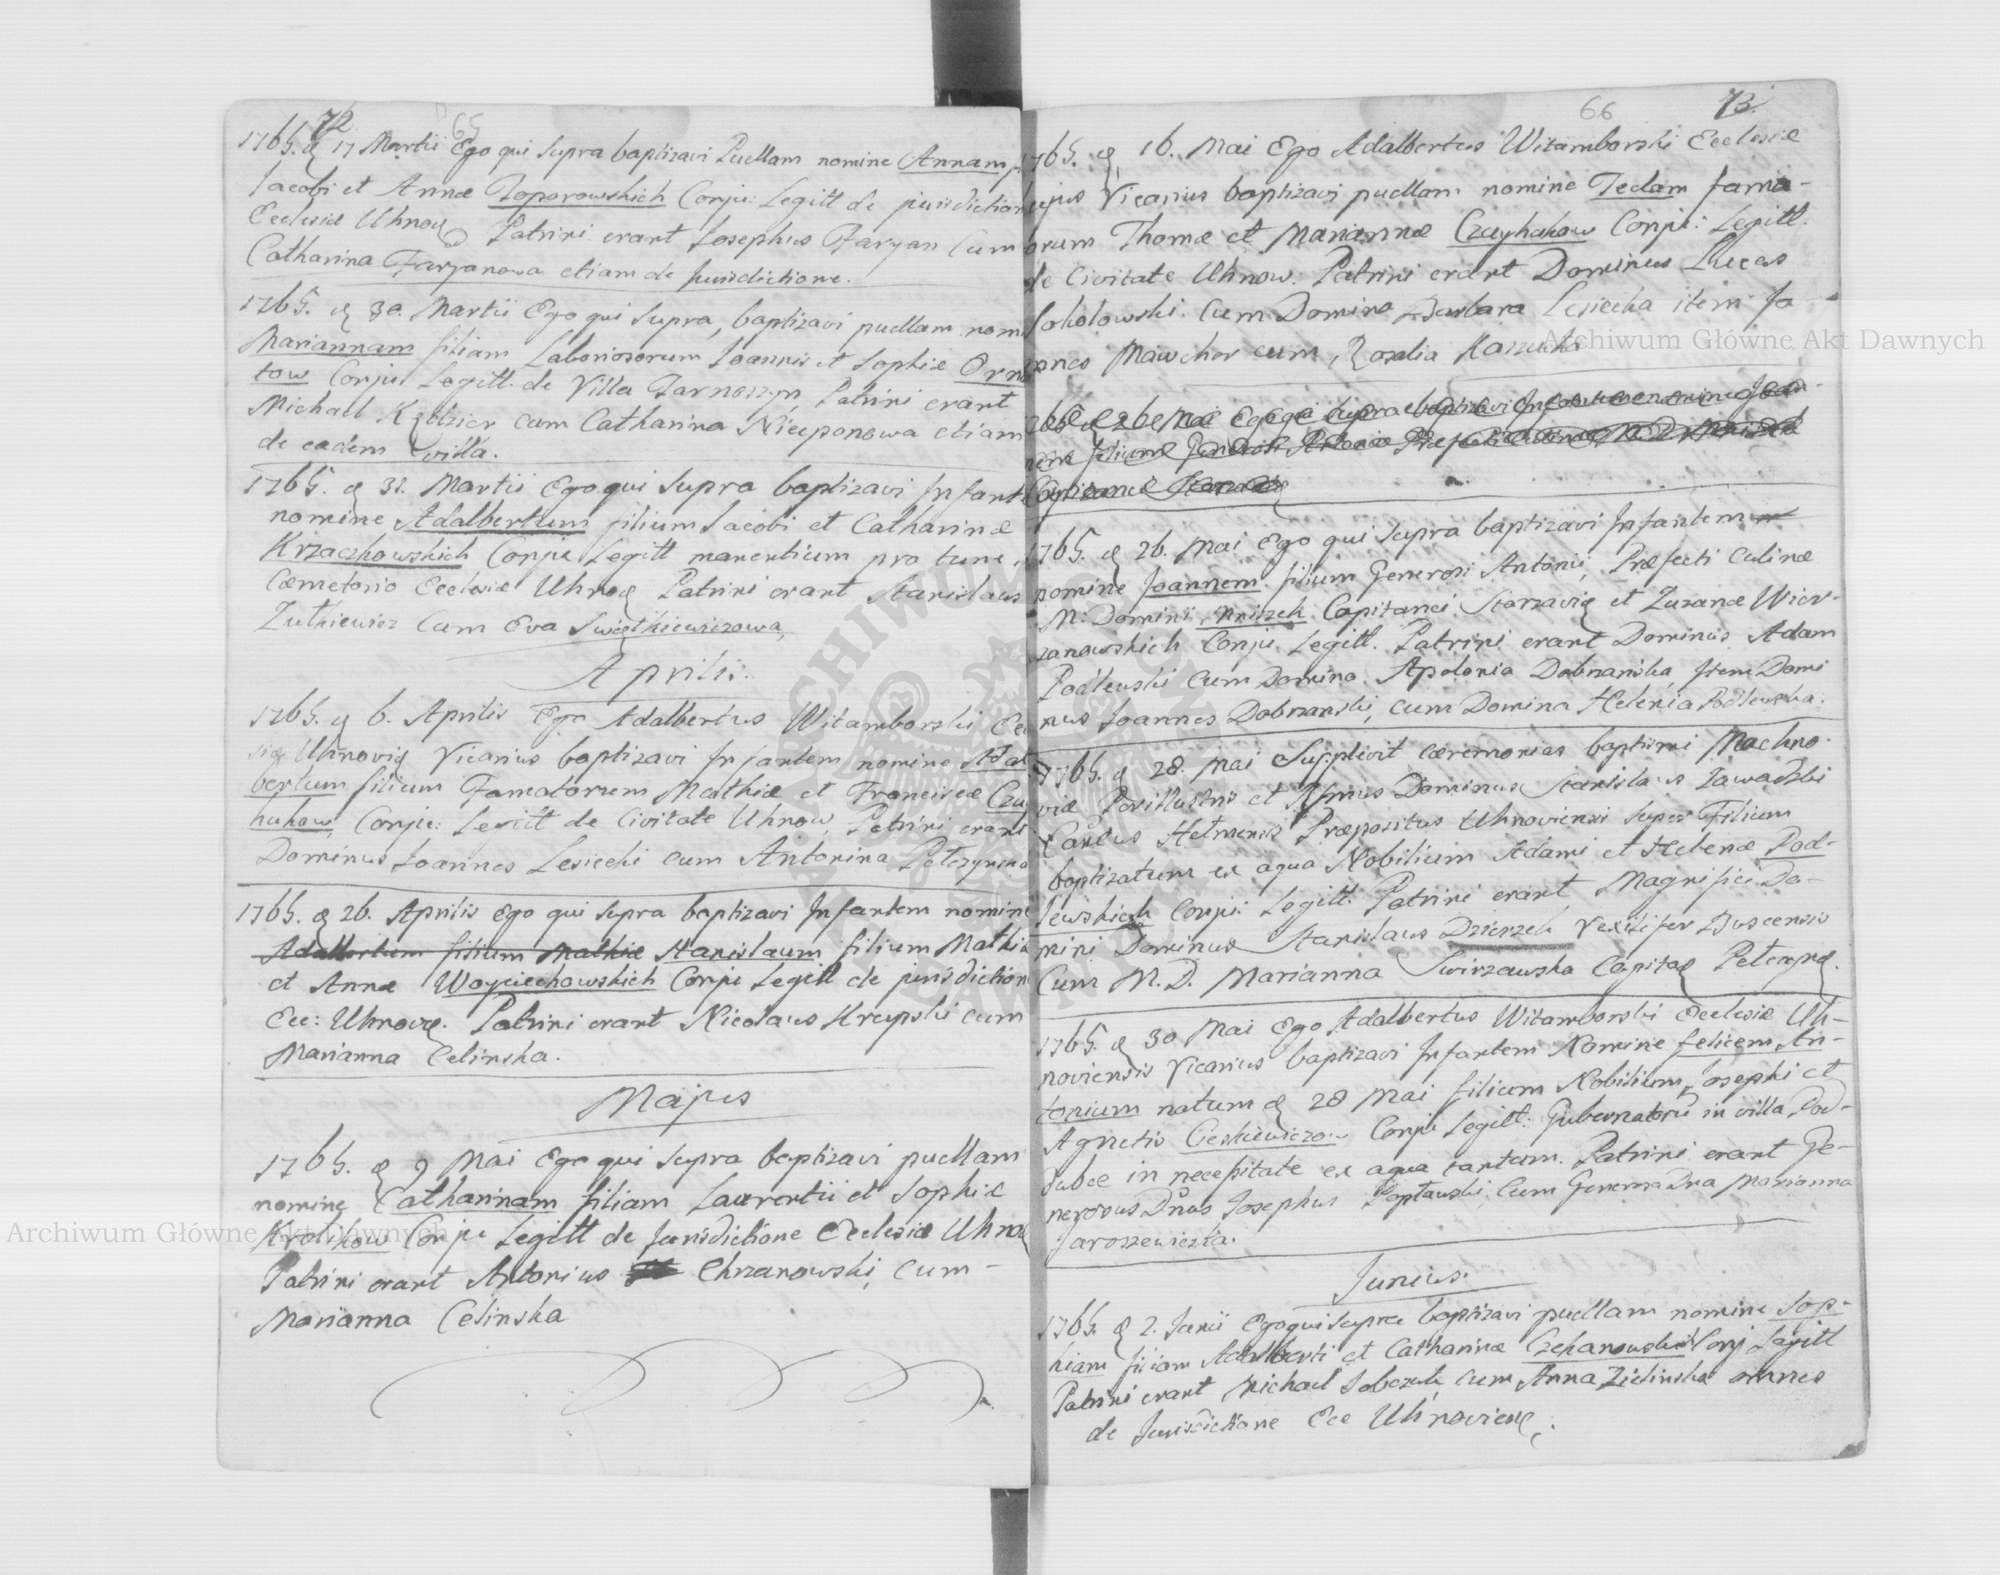 72 65
1765. d 17 Martii Ego qui supra baptizavi Puellam nomine Annam
Iacobi et Annæ Toporowskich Conju: Legitt de jurisdiction
Ecclesiæ Uhnov Patrini erant Josephus Faryan cum
Catharina Faryanowa etiam de jurisdictione.
1765. d 30. Martii Ego qui supra, baptizavi puellam nom
Mariannam filiam Laboriosorum Ioannis et Sophiæ
tow Conju Legitt. de Villa Tarnoszyn Patrini erant
Michael cum Catharina Nieuponowa etiam
de eadem villa.
1765. d 31. Martii Ego qui supra baptizavi Infant
nomine Adalbertum filium Iacobi et Catharinæ
Krzaczkowskich Conju Legitt manentium pro tunc
Cæmeterio Ecclesiæ Uhnov Patrini erant Stanislaus
Zutkiewicz cum Eva Swiętkiewiczowa,
Aprilis.
1765. d 6. Aprilis Ego Adalbertus Witamborski Ecc
siæ Uhnoviæ Vicarius baptizavi Infantem nomine Adal
bertum filium Famatorum Mathiæ et Franciscæ Czuy
hukow, Conju: Legitt de Civitate Uhnow, Patrini erant
Dominus Ioannes Lesiecki cum Antonina Pełczynska
1765. d 26. Aprilis Ego qui supra baptizavi Infantem nomine
Adalbertum filium Mathiæ Stanislaum filium Mathiæ
et Annæ Woyciechowskich Conju Legitt de jurisdiction
Ecc: Uhnov. Patrini erant Nicolaus Krupski cum
Marianna Celinska.
Majus
1765. d 9 Mai Ego qui supra baptizavi puellam
nomine Catharinam filiam Laurentii et Sophiæ
Krolikow Conju Legitt de Jurisdictione Ecclesiæ Uhnov
Patrini erant Antonius Chrzanowski, cum -
Marianna Celinska
66 73.
1765. d 16. Mai Ego Adalbertus Witamborski Ecclesiæ
ejus Vicarius baptizavi puellam nomine Teclam fama-
orum Thomæ et Mariannæ Czuyhukow Conju: Legitt.
de Civitate Uhnow. Patrini erant Dominus Lucas
Sokołowski cum Domina Barbara Lesiecka item Jo-
annes Mawchor cum Rosalia Kaszucka
1765 d 26 Mai Ego qui supra baptizavi Infantem nomine Joan-
nem filium Generosi Antonii Præfecti Culinæ M. D. Mniszek
Capitanei Starzavię
1765. d 26. Mai Ego qui supra baptizavi Infantem
nomine Joannem filium Generosi Antonii, Præfecti Culinæ
M: Domini Mniszek Capitanei Starzavię et Zuzanæ Wier-
zanowskich Conju Legitt. Patrini erant Dominus Adam
Podlewski cum Domina Apolonia Dobrzanska, Item Domi
nus Joannes Dobrzanski, cum Domina Helena Podlewska.
1765. d 28. Mai Supplevit cæremonias baptismi Machno-
viæ Perillustris et Rssmus Dominus Stanislaus Zawadzki
Canċus Hełmensis Præpositus Uhnoviensis super Filium
baptizatum ex aqua Nobilium Adami et Helenæ Pod-
lewskich Conju: Legitt: Patrini erant, Magnifici Do-
mini Dominus Stanislaus Dzierzek Vexilifer Buscensis
Cum M. D. Marianna Swirzawska Capitæ Pełczyn.
1765. d 30 Mai Ego Adalbertus Witamborski Ecclesiæ Uh-
noviensis Vicarius baptizavi Infantem Nomine felicem An-
tonium natum d 28 Mai filium Nobilium, Josephi et
Agnetis Ceskiewiczow Conju Legitt: Gubernatoru in villa Pod-
dubce in necessitate ex aqua tantum. Patrini erant Ge-
nerosus Dnus Josephus Popławski cum Generosa Dna Marianna
Jaroszewiczka.
Junius.
1765. d 2. Junii Ego qui supra baptizavi puellam nomine Sop-
hiam filiam Adalberti et Catharinæ Czekanowskich Conj Legitt
Patrini erant Michael Sobczuk cum Anna Zielinska omnes
de Jurisdictione Ecc Uhnoviens.
Archiwum Główne Akt Dawnych
Archiwum Główne Akt Dawnych